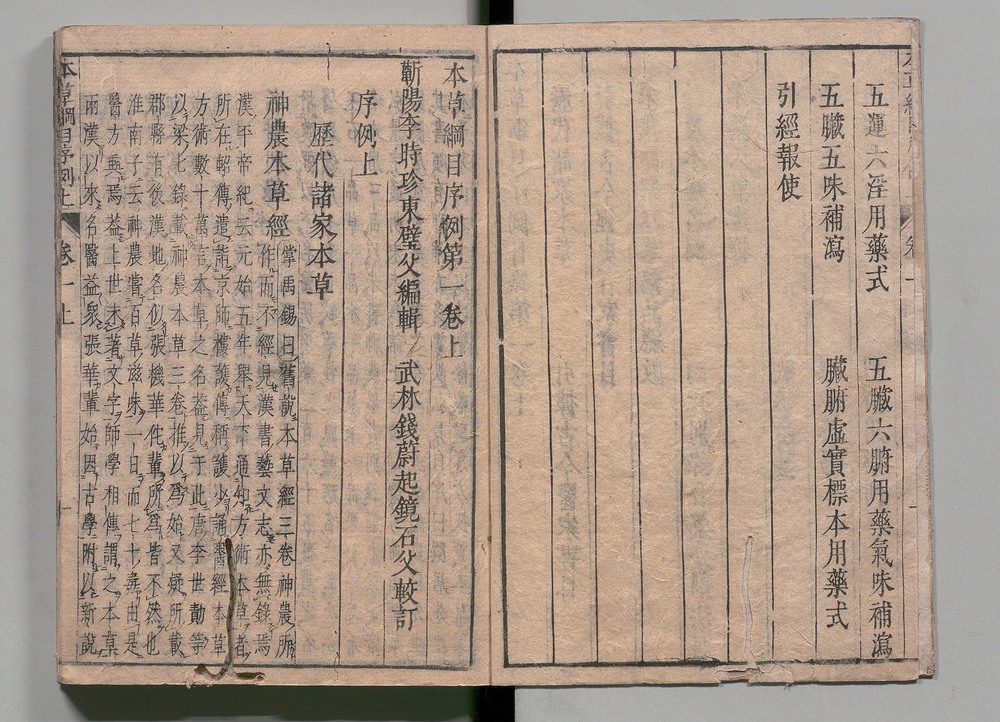 五運六淫用藥式　五臟六腑用藥氣味補瀉
五臟五味補瀉　臟腑虛實標本用藥式
引經報使
本草綱目序例第一卷上
蘄陽李時珍東璧父編輯　武林錢蔚起鏡石父較訂
序例上
歷代諸家本草
神農本草經
掌禹錫曰舊說本草經三卷神農所
作而不經見漢書藝文志亦無錄焉
漢平帝紀云元始五年舉天下通知方術本草者
所在軺傳遣詣京師樓護傳稱護少誦醫經本草
方術數十萬言本草之名葢見于此唐李世勣等
以梁七錄載神農本草三卷推以爲始又疑所載
郡縣有後漢地名似張機華佗輩所爲皆不然也
淮南子云神農嘗百草滋味一日而七十毒由是
醫方興焉葢上世未著文字師學相傳謂之本草
兩漢以來名醫益衆張華輩始因古學附以新說
本草綱目序例上　卷一上